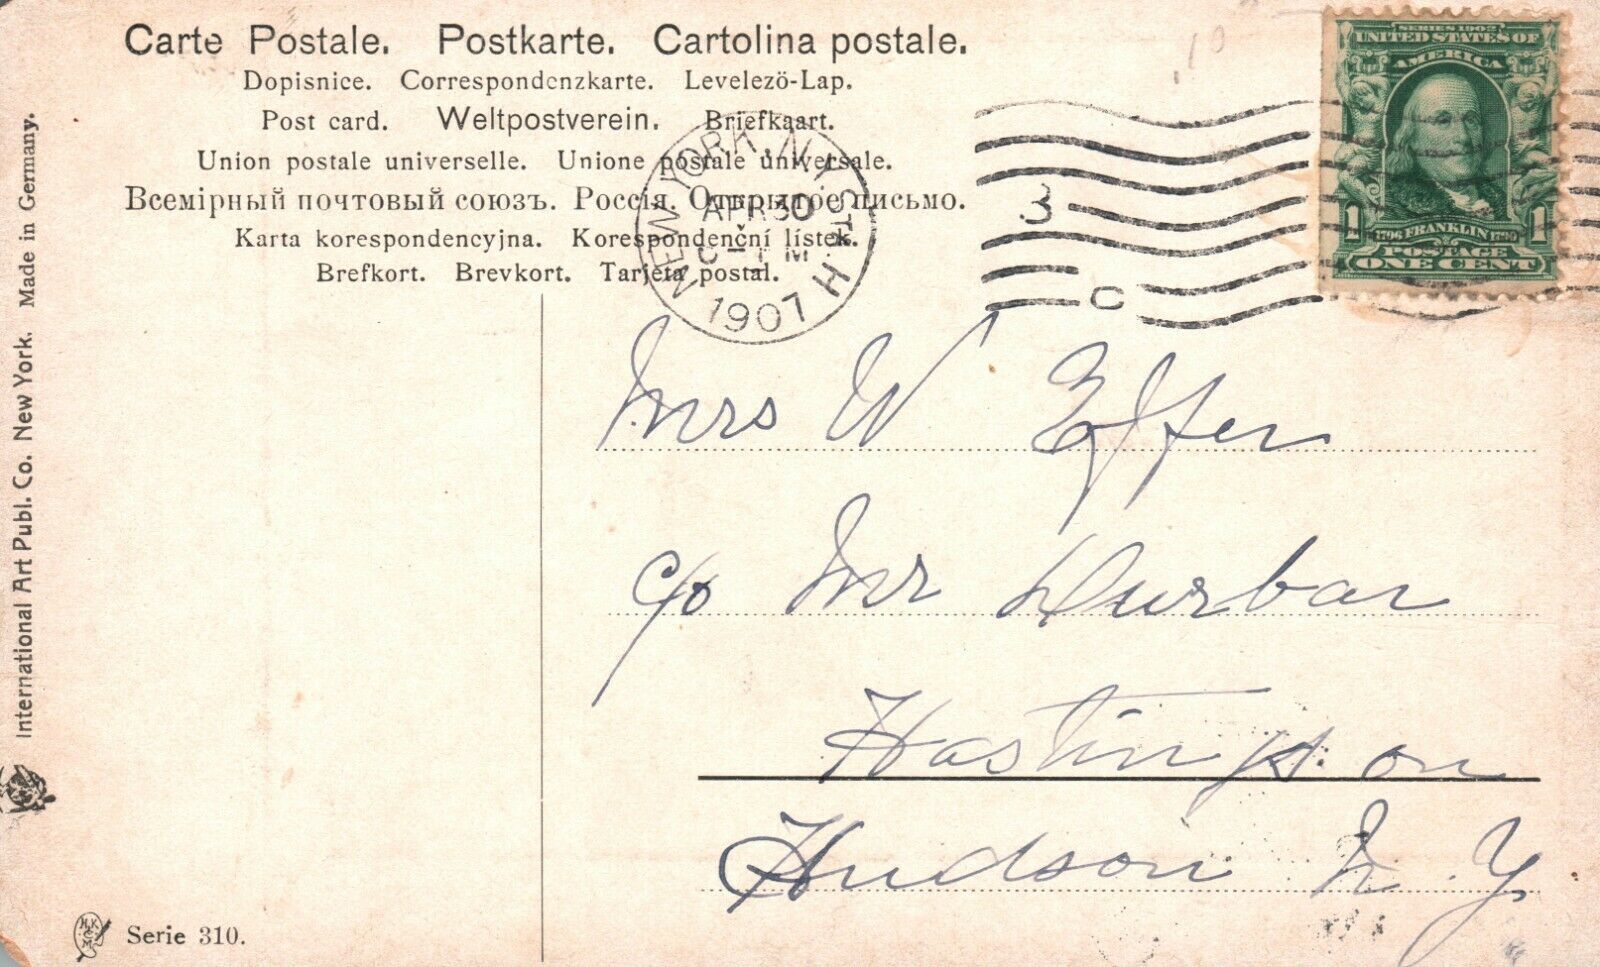 Carte Postale. Postkarte. Cartolina postale.
Dopisnice. Correspondenzkarte. Levelezö-Lap.
Post card. Weltpostverein. Briefkaart.
Union postale universelle. Unione postale universale.
Всемірный почтовый союзъ. Россія. Открытое письмо.
Karta korespondencyjna. Korespondenční lístek.
Brefkort. Brevkort. Tarjeta postal.
NEW YORK, N.Y. STA H
APR 30
1907
3
C
SERIES 1902
UNITED STATES OF
AMERICA
1 1
1706 FRANKLIN 1790
POSTAGE
ONE CENT
Mrs W Effer
c/o Mr Durbar
Hastings on
Hudson N. Y.
International Art Publ. Co. New York. Made in Germany.
H.K.
& C
M
Serie 310.